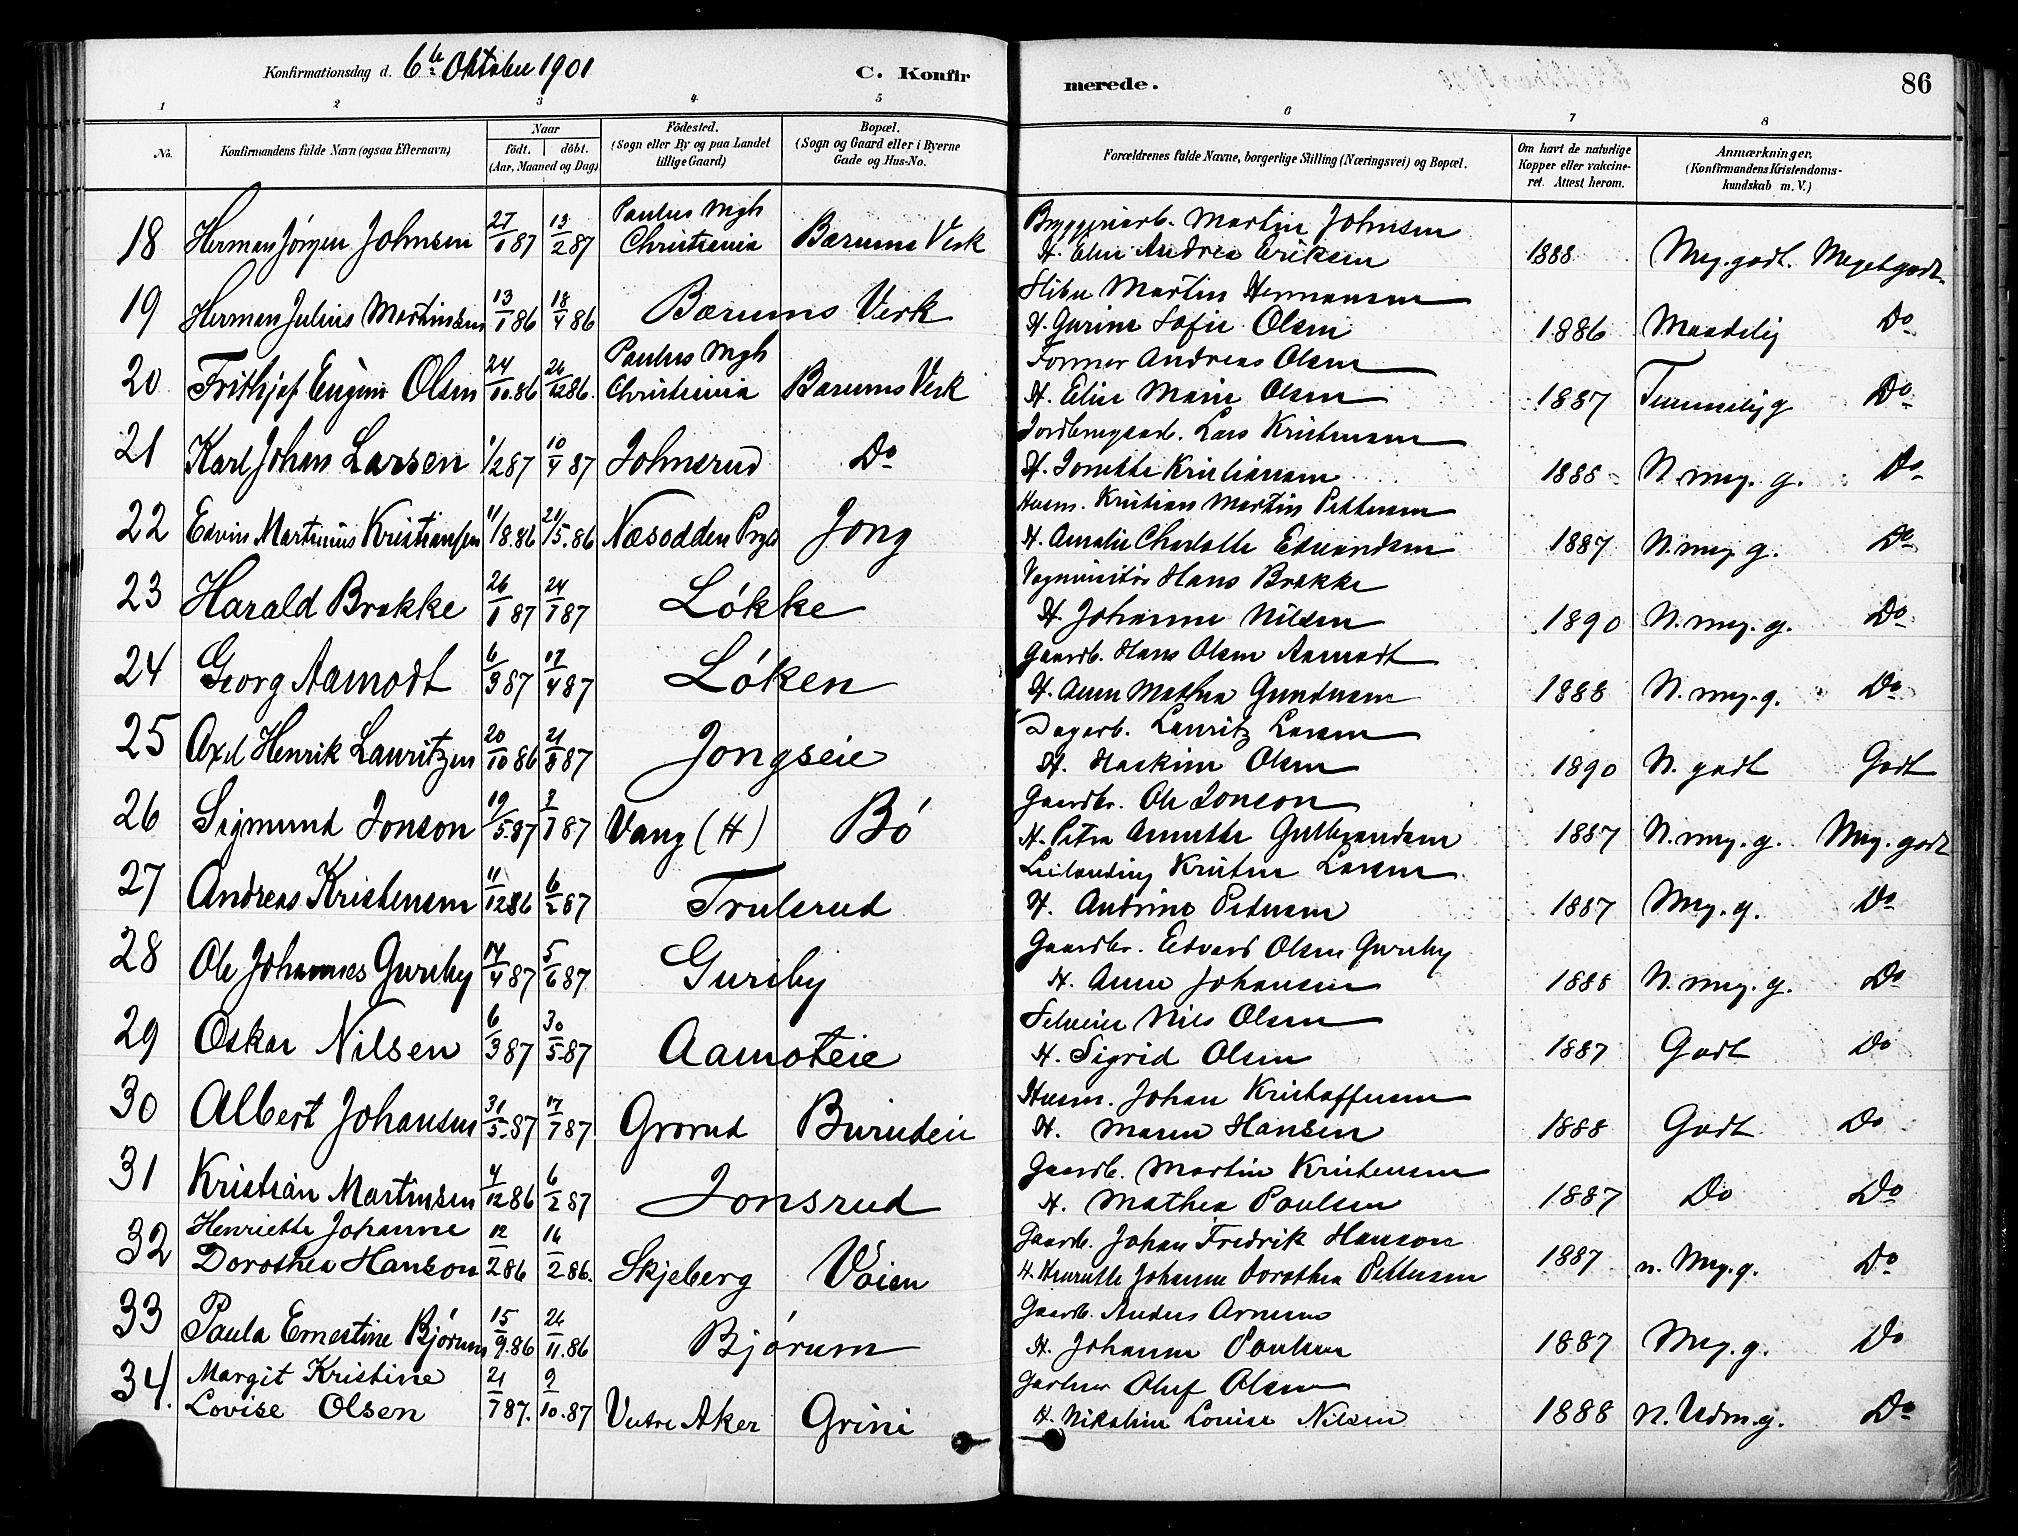 Konfirmationsdag d. 6te Oktober 1901
C. Konfirmerede.
86
1 2 3 4 5 6 7 8
No.
Konfirmandens fulde Navn (ogsaa Efternavn)
Naar
födt. döbt.
(Aar, Maaned og Dag)
Födested.
(Sogn eller By og paa Landet
tillige Gaard)
Bopæl.
(Sogn og Gaard eller i Byerne
Gade og Hus-No.
Forældrenes fulde Navne, borgerlige Stilling (Næringsvei) og Bopæl.
Om havt de naturlige
Kopper eller vakcine-
ret. Attest herom.
Anmærkninger.
(Konfirmandens Kristendoms-
kundskab m. V.)
18 Herman Jörgen Johnsen 27/1 87 13/2 87 Paulus Mgh Christiania Bærums Verk
Byggeriarb. Martin Johnsen
H. Elin Andrea Eriksen 1888 Meg. godt. Meget godt
19 Herman Julius Martinsen 13/1 86 18/4 86 Bærums Verk
Sliber Martin Hermansen
H. Gurine Sofie Olsen 1886 Maadelig Do
20 Frithjof Eugen Olsen 24/10 86 26/12 86. Paulus Mgh Christiania Bærums Verk
Former Andreas Olsen
H. Elise Marie Olsen 1887 Temmelig g Do
21 Karl Johan Larsen 1/2 87 10/4 87 Johnsrud Do
Jordbrugsarb. Lars Kristensen
H. Jonette Kristiansen 1888 N. meg. g. Do
22 Edvin Martinius Kristiansen 11/1 8.86 21/5.86 Næsodden Prgld Jong
Husm. Kristian Martin Pettersen
H. Amalie Charlotte Edvardsen 1887 N. meg. g. Do
23 Harald Brække 26/1 87 24/7 87 Løkke
Vognvisitør Hans Brække
H. Johanne Nilsen 1890 N. meg. g. Do
24 Georg Aamodt 6/3 87 17/4 87 Løken
Gaardb. Hans Olsen Aamodt
H. Anne Mathea Gundersen 1888 N. meg. g. Do
25 Axel Henrik Lauritzen 20/10 86 21/8 87 Jongseie
Dagarb. Lauritz Larsen
H. Haakine Olsen 1890 N. godt Godt
26 Sigmund Jonson 19/5.87 3/7 87 Vang (H) Bö
Gaardbr. Ole Jonson
H. Petra Annette Gulbrandsen 1887 N. meg. g. Meg. godt
27 Andreas Kristensen 11/12 86 6/2 87 Trulsrud
Leilending Kristen Larsen
H. Andrine Petersen 1887 Meg. g. Do
28 Ole Johannes Guriby 17/4 87 5/6 87. Guriby
Gaardbr. Edvard Olsen Guriby
H. Anne Johansen 1888 N. meg. g. Do
29 Oskar Nilsen 6/3 87 30/5.87 Aamoteie
Selveier Nils Olsen
H. Sigrid Olsen 1887 Godt Do
30 Albert Johansen 31/5.87 17/7 87 Grorud Burudeie
Husm. Johan Kristoffersen
H. Maren Hansen 1888 Godt Do
31 Kristian Martinsen 4/12 86 6/2 87 Jonsrud
Gaardb. Martin Kristensen
H. Mathea Paulsen 1887 Do Do
32 Henriette Johanne Dorothea Hanson 12/2 86 16/2 86. Skjeberg Vöien
Gaardb. Johan Fredrik Hanson
H. Henriette Johanne Dorothea Pettersen 1887 n. Meg. g. Do
33 Paula Ernestine Bjørum 15/9.86 26/11.86 Bjørum
Gaardb. Anders Arnesen
H. Johanne Paulsen 1887 Meg. g. Do
34. Margit Kristine Lovise Olsen 21/7 87. 9/10.87 Vestre Aker Grini
Gartner Oluf Olsen
H. Nikoline Louise Nilsen 1888 n. Udm. g. Do